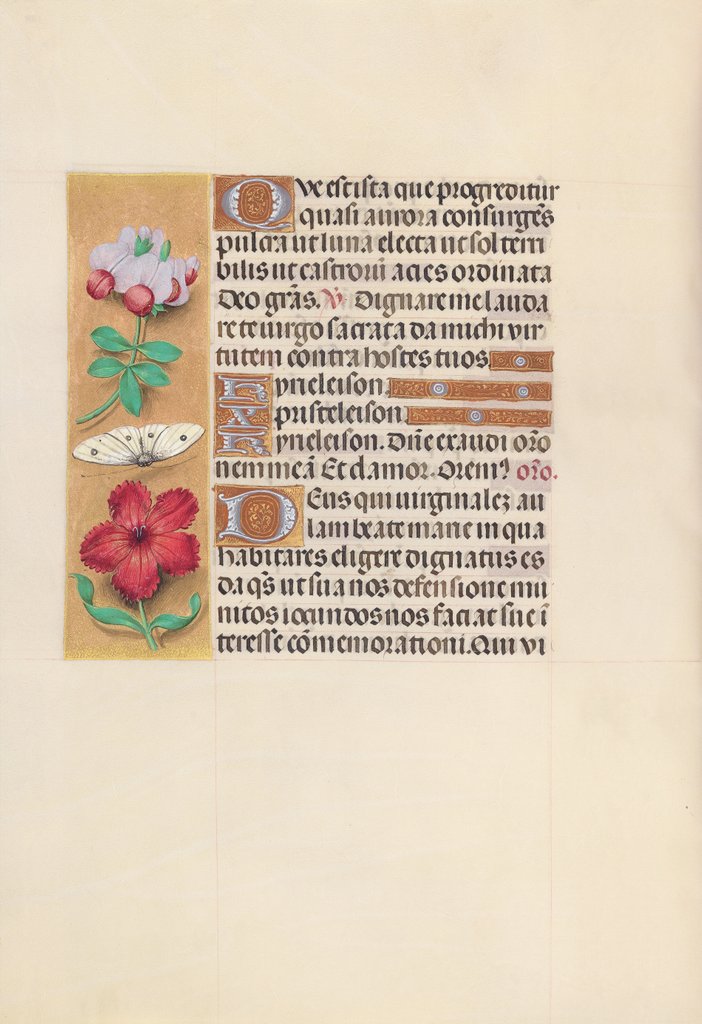 Que est ista que progreditur
quasi aurora consurgēs
pulcra ut luna electa ut sol terri
bilis ut castrorū acies ordinata
Deo grās. V. Dignare me lauda
re te virgo sacrata da michi vir
tutem contra hostes tuos
Kyrieleison.
Xpristeleison
Kyrieleison. Dn̄e exaudi oro
nem meā Et clamor. Orem9 oro.
Deus qui virginalez au
lam beate marie in qua
habitares eligere dignatus es
da q̄s ut sua nos defensione mu
nitos iocundos nos faciat sue ī
teresse cōmemorationi. Qui vi